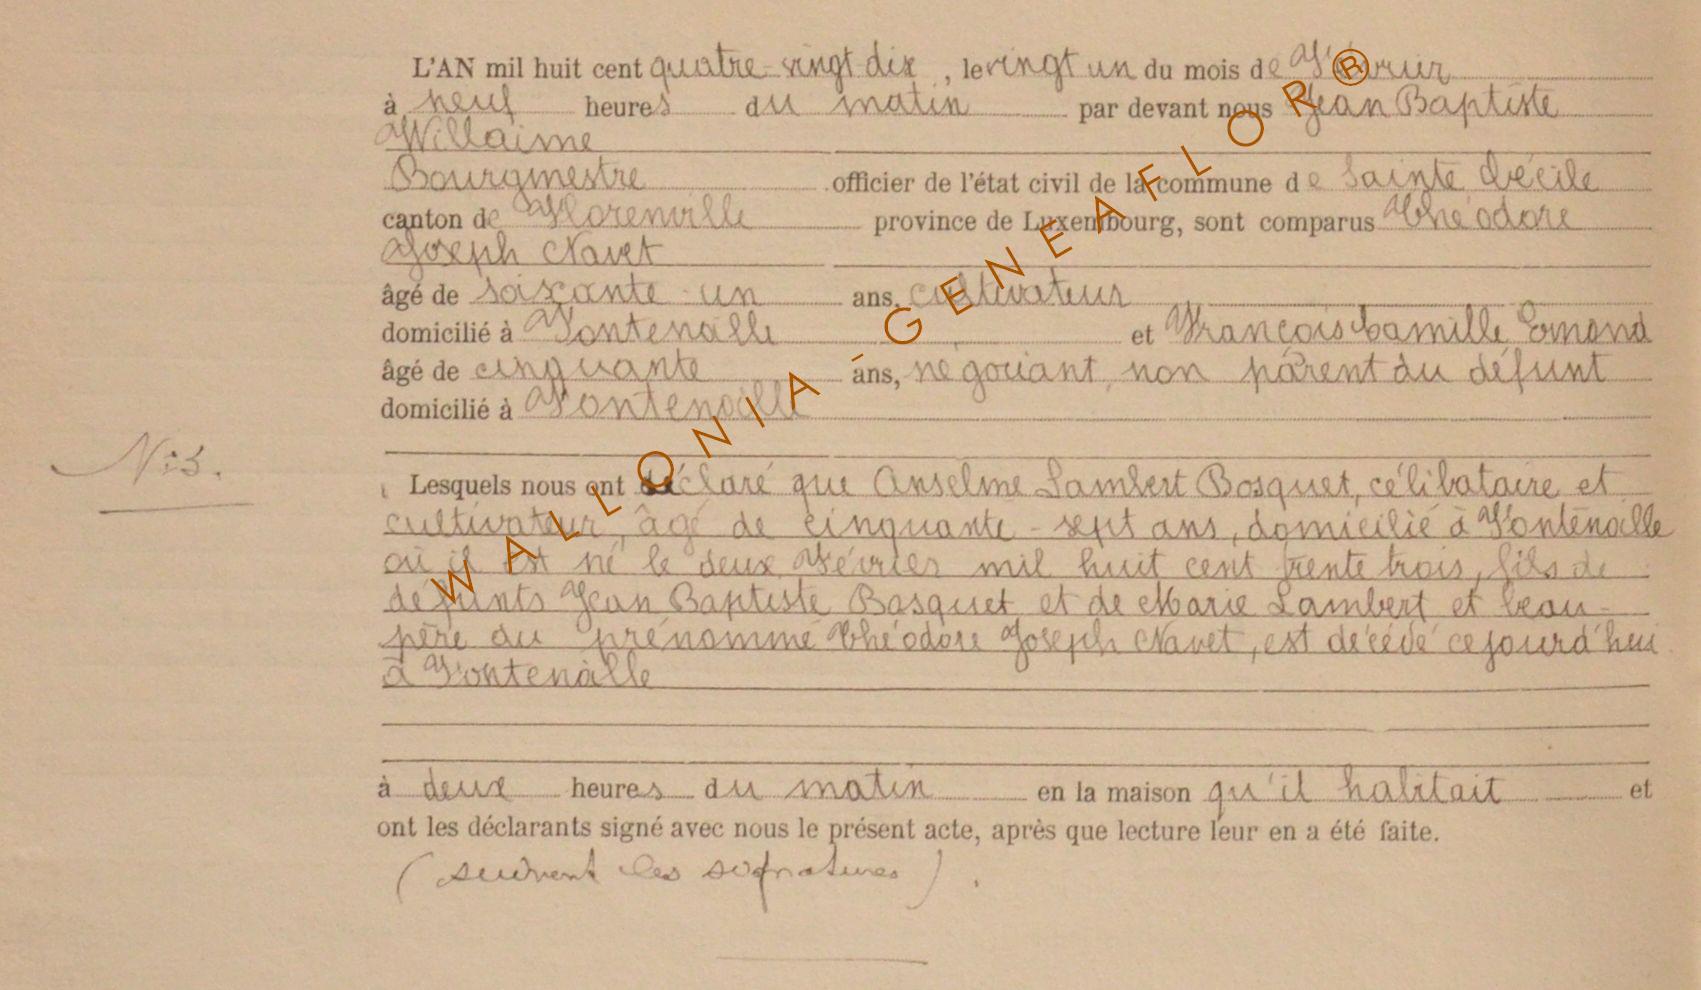 L'AN mil huit cent quatre-vingt dix, le vingt un du mois de Février
à neuf heures du matin par devant nous Jean Baptiste
Willaime
Bourgmestre officier de l'état civil de la commune de Sainte Cécile
canton de Florenville province de Luxembourg, sont comparus Théodore
Joseph Navet
âgé de soixante-un ans, cultivateur
domicilié à Fontenoille et François Camille Emond
âgé de cinquante ans, négociant, non parent du défunt
domicilié à Fontenoille
N:5.
Lesquels nous ont déclaré que Anselme Lambert Bosquet, célibataire et
cultivateur, âgé de cinquante-sept ans, domicilié à Fontenoille
où il est né le deux Février mil huit cent trente trois, fils de
défunts Jean Baptiste Bosquet et de Marie Lambert et beau-
père du prénommé Théodore Joseph Navet, est décédé cejourd'hui
à Fontenoille
à deux heures du matin en la maison qu'il habitait et
ont les déclarants signé avec nous le présent acte, après que lecture leur en a été faite.
(suivent les signatures).
WALLONIA - GENEAFLOR ®